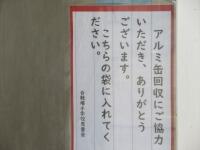 アルミ缶回収にご協力
いただき、ありがとう
ございます。
こちらの袋に入れてく
ださい。